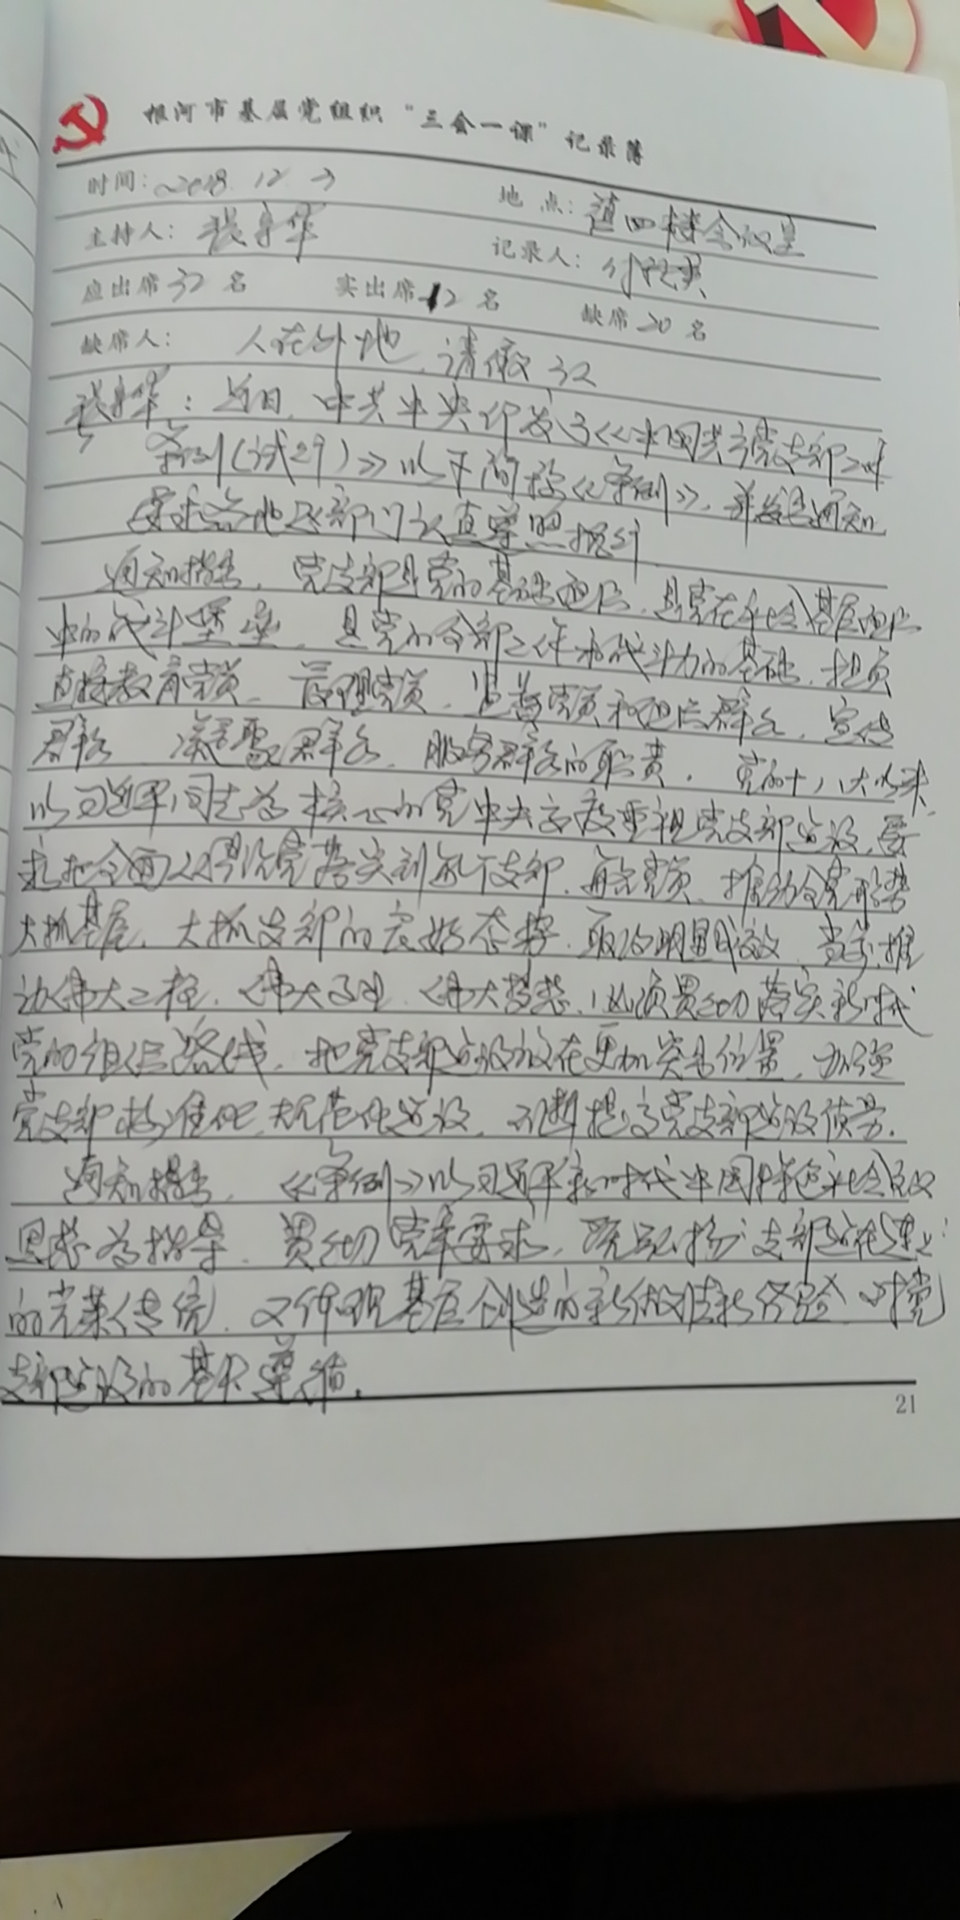 根河市基层党组织“三会一课”记录薄
时间：2018.12.3 地点：镇四楼会议室
主持人： 记录人：
应出席32名 实出席12名 缺席20名
缺席人： 人在外地 请假
近日，中共中央印发了《中国共产党支部工作
条例（试行）》以下简称《条例》，并发出通知
要求各地区部门认真遵照执行
通知指出，党支部是党的基础组织，是党在社会基层组织
中的战斗堡垒，是党的全部工作和战斗力的基础，担负
直接教育党员、管理党员、监督党员和组织群众、宣传
群众、凝聚群众、服务群众的职责。党的十八大以来，
以习近平同志为核心的党中央高度重视党支部建设，要
求把全面从严治党落实到每个支部、每名党员，推动全党形势
大抓基层、大抓支部的良好态势，取得明显成效，当前，推
进伟大工程、伟大事业、伟大梦想，必须贯彻落实新时代
党的组织路线，把党支部建设放在更加突出位置，加强
党支部标准化、规范化建设，不断提高党支部建设质量。
通知指出，《条例》以习近平新时代中国特色社会主义
思想为指导，贯彻党章要求，既弘扬“支部建在连上”
的光荣传统，又体现基层创造的新做法新经验，对党
支部建设的基本遵循。
21